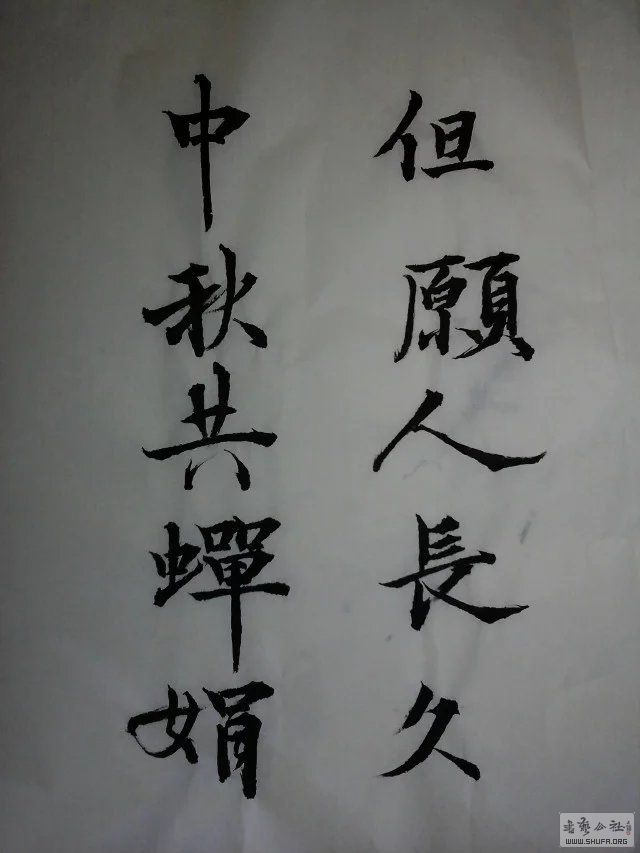 但願人長久
中秋共蟬娟
書藝公社
WWW.SHUFA.ORG